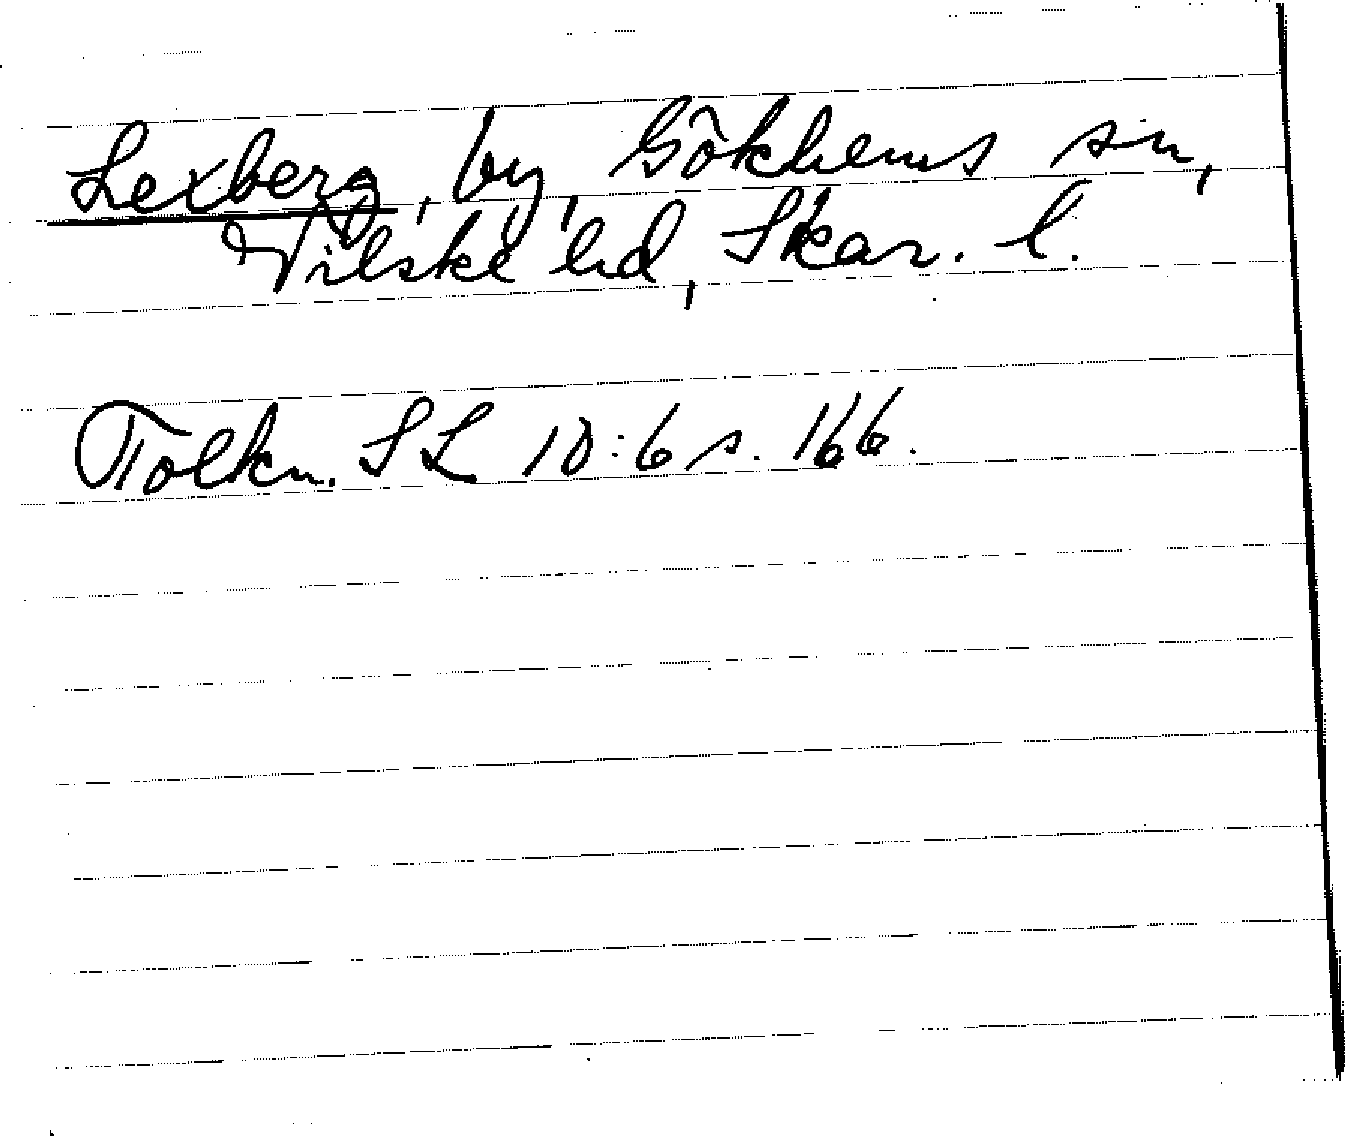 Lexberg, by, Gökhems sn,
Vilske hd, Skar. l.
Tolkn. SL 10:6 s. 166.